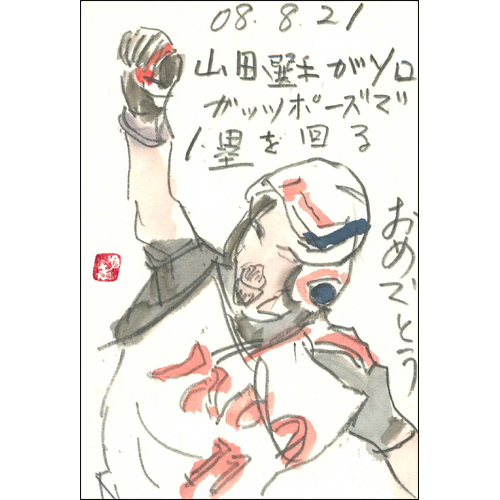 08.8.21
山田選手がソロ
ガッツポーズで
1塁を回る
おめでとう